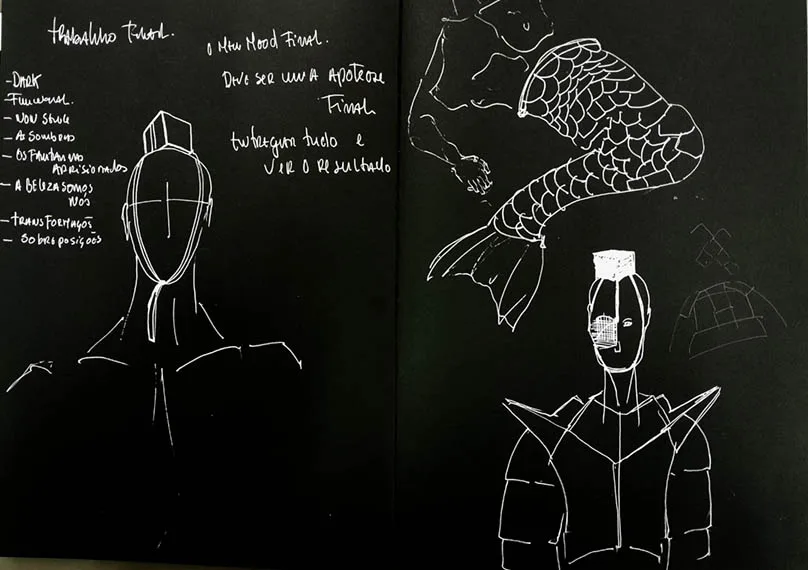 TRABALHO FINAL.
- DARK
- FUNCIONAL.
- NON
- AS SOMBRAS
- OS FANTASMAS
APRISIONADOS
- A BELEZA SOMOS
NÓS
- TRANSFORMAÇÕES
- SOBREPOSIÇÕES
O MEU MOOD FINAL.
DEVE SER UMA APOTEOSE
FINAL
ENTREGAR TUDO E
VER O RESULTADO